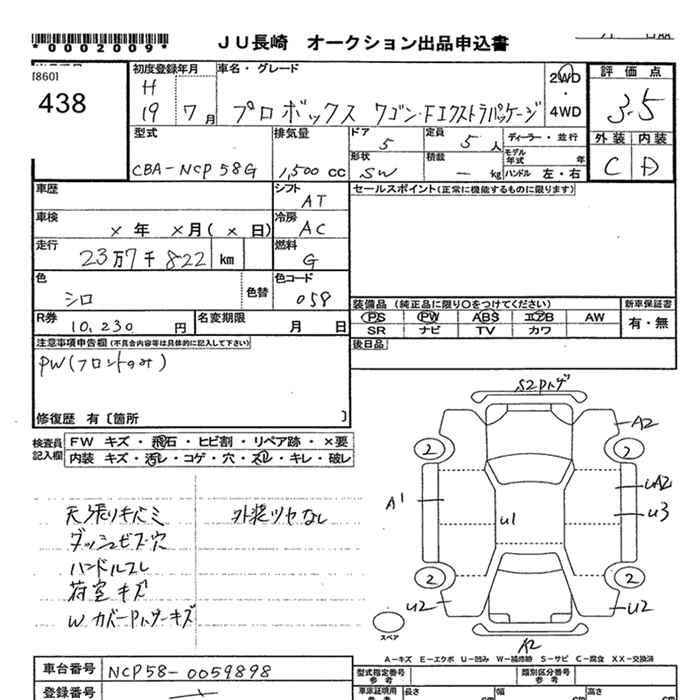 *0002009*
JU長崎 オークション出品申込書
[860]
438
初度登録年月
H
19 7月
車名・グレード
プロボックス ワゴン・Fエクストラパッケージ
2WD
・
4WD
評価点
3.5
外装 内装
C D
型式
CBA-NCP58G
排気量
1,500 cc
ドア
5
定員
5 人
ディーラー・並行
形状
SW
積載
- kg
モデル年式 年
ハンドル 左・右
車歴
シフト
AT
セールスポイント(正常に機能するものに限ります)
車検
× 年 × 月( × 日)
冷房
AC
走行
23万7千822 km
燃料
G
色
シロ
色替
色コード
058
装備品 (純正品に限り○をつけてください)
新車保証書
PS PW ABS エアB AW
有・無
SR ナビ TV カワ
R券
10,230 円
名変期限
月 日
後日品
注意事項申告欄(不具合内容等は具体的に記入して下さい)
PW(フロントのみ)
修復歴 有〔箇所 〕
検査員記入欄
FW キズ・飛石・ヒビ割・リペア跡・×要
内装 キズ・汚れ・コゲ・穴・スレ・キレ・破レ
天張りキバミ
外装ツヤなし
ダッシュビス穴
ハンドルスレ
荷室キズ
WカバーPハゲ・キズ
S2Pハゲ
A2
2 2
A1
UA2
U3
U1
2 2
U2
U2
A2
スペア
A-キズ E-エクボ U-凹み W-補修跡 S-サビ C-腐食 XX-交換済
車台番号
NCP58-0059898
登録番号
型式指定番号
参考
類別区分番号
参考
車庫証明用
参考
長さ cm
幅 cm
高さ cm